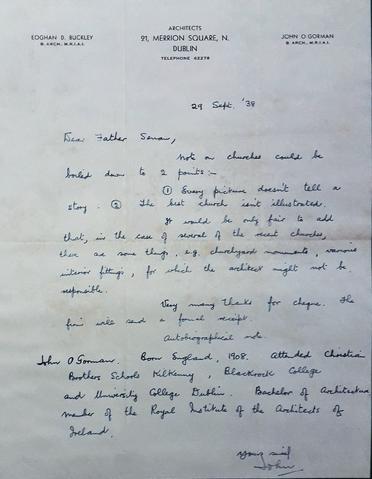 ARCHITECTS
EOGHAN D. BUCKLEY
B. ARCH., M.R.I.A.I.
21, MERRION SQUARE, N.
DUBLIN
TELEPHONE 62278
JOHN O GORMAN
B. ARCH., M.R.I.A.I.
29 Sept. '38
Dear Father Senan,
Note on churches could be
boiled down to 2 points:-
① Every picture doesn't tell a
story. ② The best church isn't illustrated.
It would be only fair to add
that, in the case of several of the recent churches,
there are some things, e.g. churchyard monuments, various
interior fittings, for which the architect might not be
responsible.
Very many thanks for cheque. The
firm will send a formal receipt.
Autobiographical note.
John O'Gorman. Born England, 1908. Attended Christian
Brothers Schools Kilkenny, Blackrock College
and University College Dublin. Bachelor of Architecture
member of the Royal Institute of the Architects of
Ireland.
John.